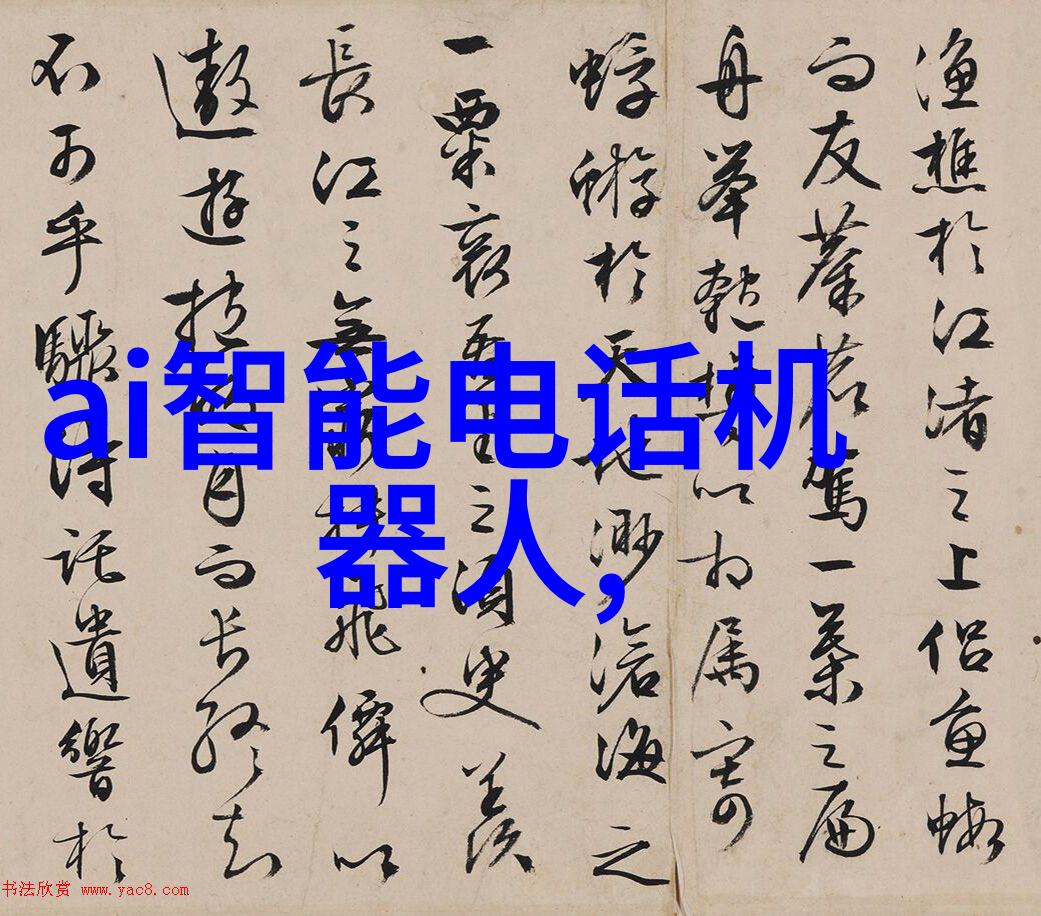 漁樵於江渚之上侶魚蝦
而友麋鹿駕一葉之扁
舟舉匏樽以相属寄
蜉蝣於天地渺滄海之
一粟哀吾生之須臾羨
長江之無窮挾飛僊以
遨遊抱明月而長終知
不可乎驟得託遺響於
ai智能电话机
器人,
书法欣赏 www.yac8.com